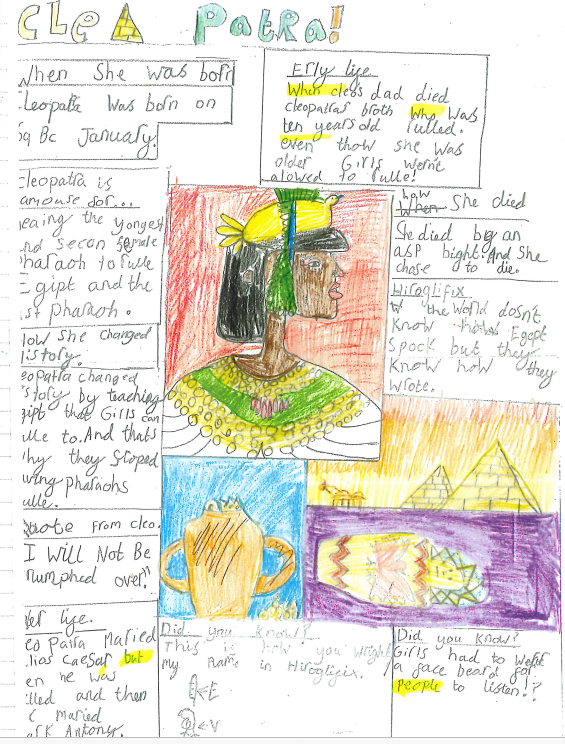 CLE PATRA!
When She was born
Cleopatra was born on
69 Bc January.
Erly lije
When cleos dad died
cleopatras broth who was
ten years old rulled.
even thow she was
older Girls wernt
alowed to rulle!
Cleopatra is
amouse for...
beaing the yongest
nd secon female
Pharaoh to rulle
Egipt and the
st pharaoh.
how She died
She died by an
asp bight. And She
chose to die.
Hiroglifix
the world dosn't
know how Egept
Spock but they
know how they
wrote.
How She changed
history.
eopatra changed
story by teaching
gipt that Girls can
ulle to. And thats
hy they Stoped
wing pharaohs
ulle.
quote From cleo.
I Will Not Be
riumphed over."
ter lije.
eo Patra Maried
lias Caesar but
en he was
illed and then
Maried
ark Antony.
Did you know?
This is how you wright
my name in Hiroglifix.
E
V
Did you know?
Girls had to wear
a face beard for
people to listen!?